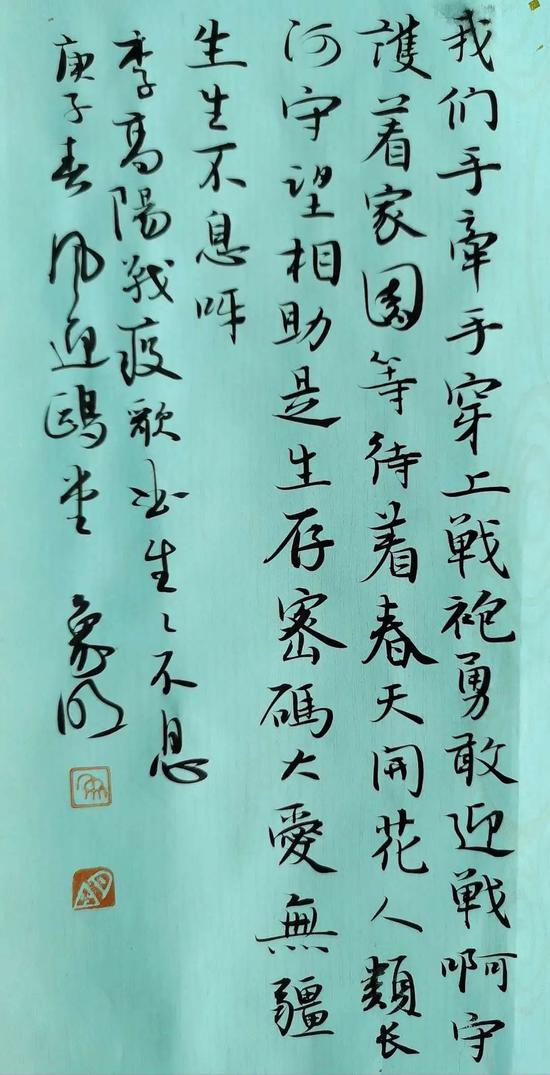 我们手牵手穿上戦袍勇敢迎戦啊守
護着家園等待着春天開花人類长
河守望相助是生存密碼大愛無疆
生生不息呀
李高陽戰疫歌曲生生不息
庚子春 風迎鷗堂 象明